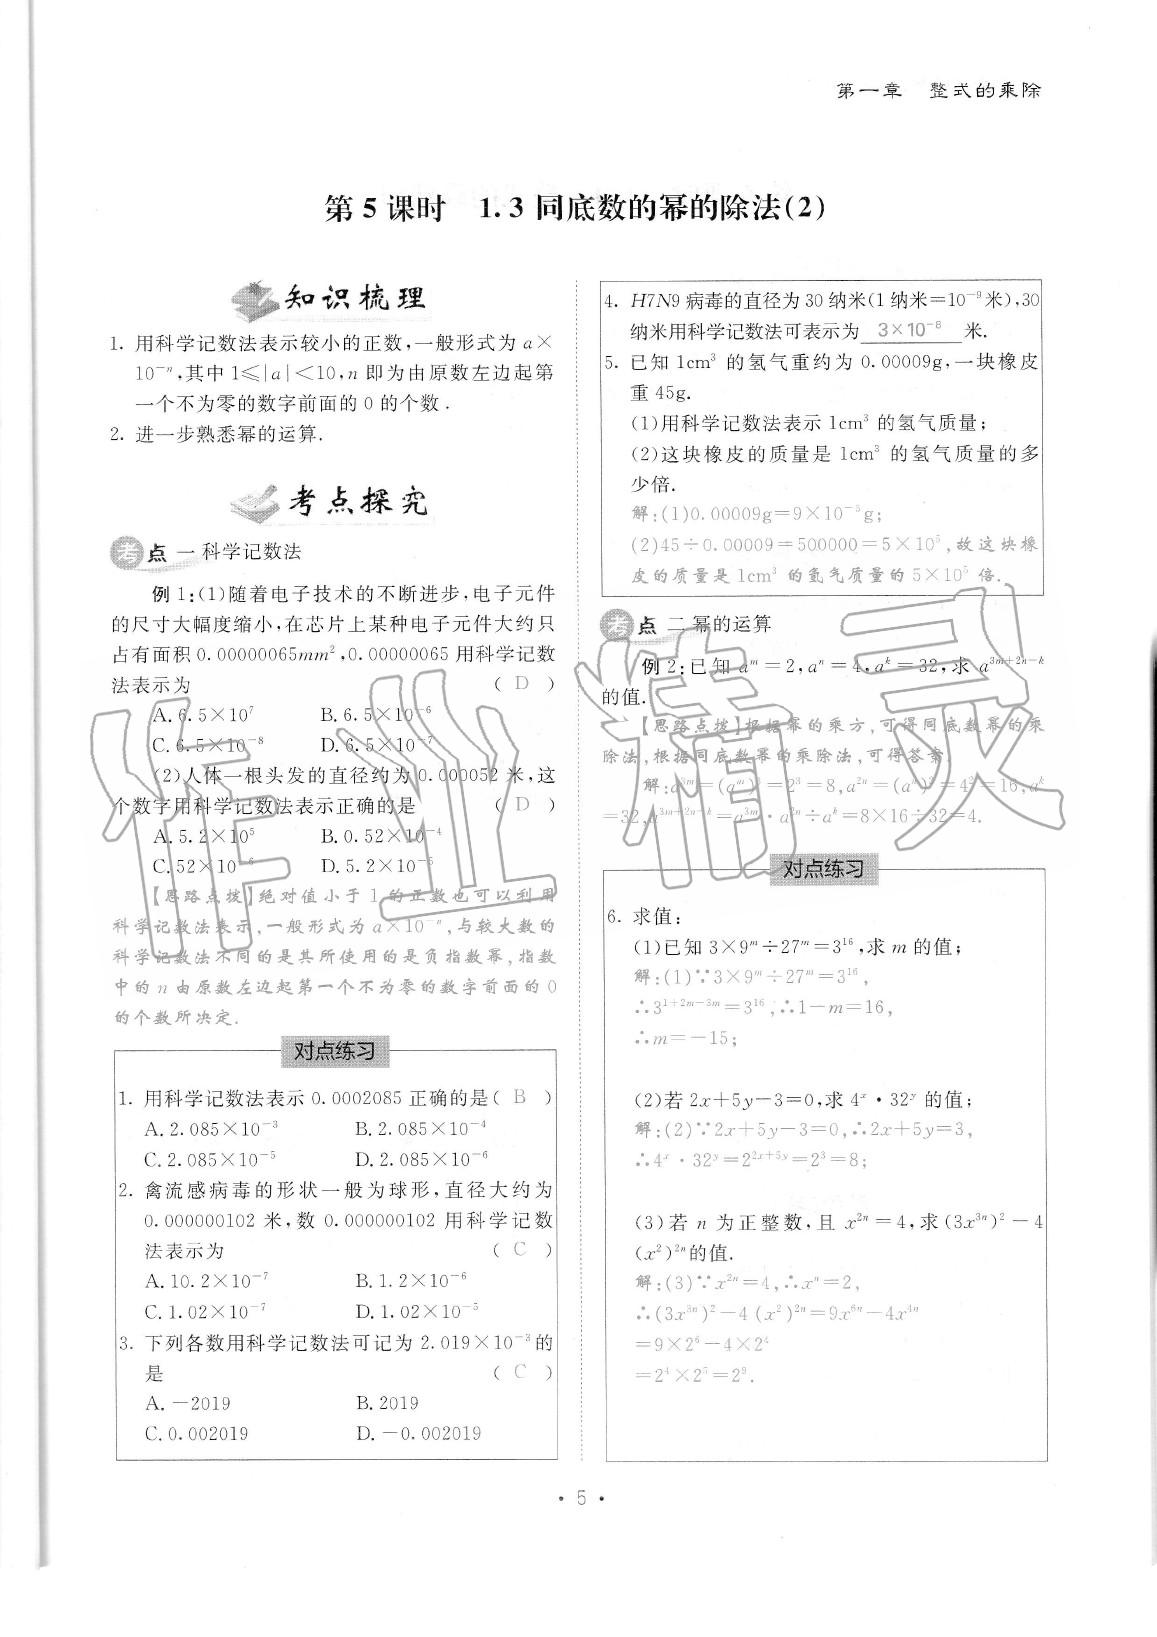 第一章　整式的乘除
第 5 课时　1.3 同底数的幂的除法(2)
知识梳理
1. 用科学记数法表示较小的正数,一般形式为 a×
10⁻ⁿ,其中 1≤|a|<10,n 即为由原数左边起第
一个不为零的数字前面的 0 的个数.
2. 进一步熟悉幂的运算.
考点探究
考点 一 科学记数法
例 1:(1)随着电子技术的不断进步,电子元件
的尺寸大幅度缩小,在芯片上某种电子元件大约只
占有面积 0.00000065mm²,0.00000065 用科学记数
法表示为 ( D )
A. 6.5×10⁷ B. 6.5×10⁻⁶
C. 6.5×10⁻⁸ D. 6.5×10⁻⁷
(2)人体一根头发的直径约为 0.000052 米,这
个数字用科学记数法表示正确的是 ( D )
A. 5.2×10⁵ B. 0.52×10⁻⁴
C. 52×10⁻⁶ D. 5.2×10⁻⁵
【思路点拨】绝对值小于 1 的正数也可以利用
科学记数法表示,一般形式为 a×10⁻ⁿ,与较大数的
科学记数法不同的是其所使用的是负指数幂,指数
中的 n 由原数左边起第一个不为零的数字前面的 0
的个数所决定.
对点练习
1. 用科学记数法表示 0.0002085 正确的是( B )
A. 2.085×10⁻³ B. 2.085×10⁻⁴
C. 2.085×10⁻⁵ D. 2.085×10⁻⁶
2. 禽流感病毒的形状一般为球形,直径大约为
0.000000102 米,数 0.000000102 用科学记数
法表示为 ( C )
A. 10.2×10⁻⁷ B. 1.2×10⁻⁶
C. 1.02×10⁻⁷ D. 1.02×10⁻⁵
3. 下列各数用科学记数法可记为 2.019×10⁻³ 的
是 ( C )
A. －2019 B. 2019
C. 0.002019 D. －0.002019
4. H7N9 病毒的直径为 30 纳米(1 纳米＝10⁻⁹米),30
纳米用科学记数法可表示为 3×10⁻⁸ 米.
5. 已知 1cm³ 的氢气重约为 0.00009g,一块橡皮
重 45g.
(1)用科学记数法表示 1cm³ 的氢气质量;
(2)这块橡皮的质量是 1cm³ 的氢气质量的多
少倍.
解:(1)0.00009g＝9×10⁻⁵g;
(2)45÷0.00009＝500000＝5×10⁵,故这块橡
皮的质量是 1cm³ 的氢气质量的 5×10⁵ 倍.
考点 二 幂的运算
例 2:已知 aᵐ＝2,aⁿ＝4,aᵏ＝32,求 a³ᵐ⁺²ⁿ⁻ᵏ
的值.
【思路点拨】根据幂的乘方,可得同底数幂的乘
除法,根据同底数幂的乘除法,可得答案.
解:a³ᵐ＝(aᵐ)³＝2³＝8,a²ⁿ＝(aⁿ)²＝4²＝16,aᵏ
＝32,a³ᵐ⁺²ⁿ⁻ᵏ＝a³ᵐ·a²ⁿ÷aᵏ＝8×16÷32＝4.
对点练习
6. 求值:
(1)已知 3×9ᵐ÷27ᵐ＝3¹⁶,求 m 的值;
解:(1)∵3×9ᵐ÷27ᵐ＝3¹⁶,
∴3¹⁺²ᵐ⁻³ᵐ＝3¹⁶,∴1－m＝16,
∴m＝－15;
(2)若 2x＋5y－3＝0,求 4ˣ·32ʸ 的值;
解:(2)∵2x＋5y－3＝0,∴2x＋5y＝3,
∴4ˣ·32ʸ＝2²ˣ⁺⁵ʸ＝2³＝8;
(3)若 n 为正整数,且 x²ⁿ＝4,求(3x³ⁿ)²－4
(x²)²ⁿ的值.
解:(3)∵x²ⁿ＝4,∴xⁿ＝2,
∴(3x³ⁿ)²－4(x²)²ⁿ＝9x⁶ⁿ－4x⁴ⁿ
＝9×2⁶－4×2⁴
＝2⁴×2⁵＝2⁹.
作业精灵
· 5 ·